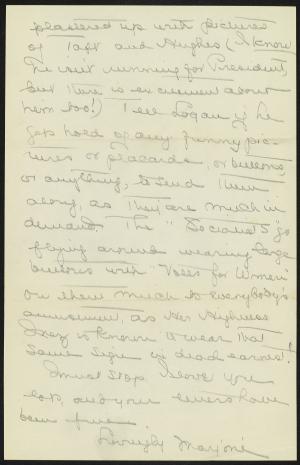 plastered up with pictures
of Taft and Hughes (I know
he isn't running for President,
but there is excitement about
him too!) Tell Logan if he
gets hold of any funny pic-
tures or placards, or buttons
or anything, to send them
along, as they are much in
demand. The "Socialists" go
flying around wearing large
buttons with "Votes for Women"
on them much to everybody's
amusement, as Her Highness
is known to wear that
same sign in dead earnest!
I must stop. I love you
lots, and your letters have
been fine.
Lovingly Marjorie